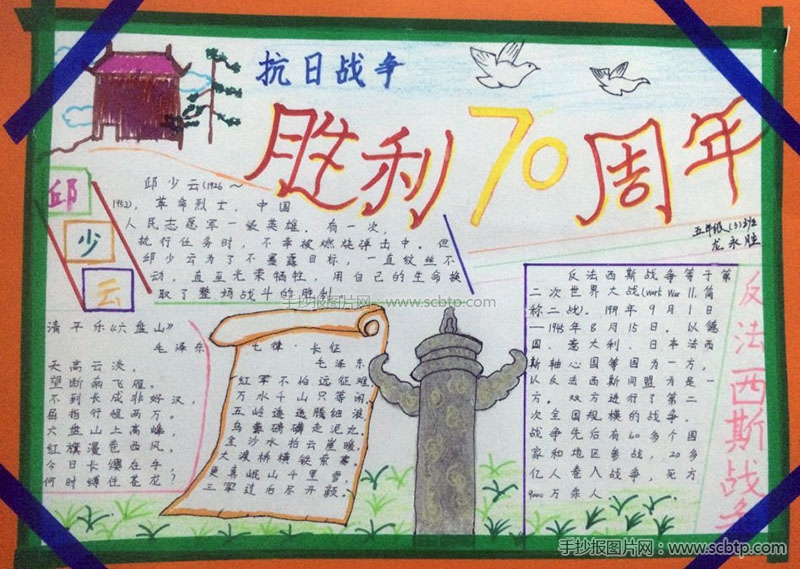 抗日战争
胜利70周年
五年级(3)班
龙永胜
邱少云
邱少云(1926～
1952)，革命烈士、中国
人民志愿军一级英雄。有一次，
执行任务时，不幸被燃烧弹击中。但
邱少云为了不暴露目标，一直纹丝不
动，直至光荣牺牲，用自己的生命换
取了整场战斗的胜利
手抄报图片网：www.scbtp.com
清平乐《六盘山》
毛泽东
天高云淡，
望断南飞雁。
不到长城非好汉，
屈指行程两万。
六盘山上高峰，
红旗漫卷西风。
今日长缨在手，
何时缚住苍龙？
七律·长征
毛泽东
红军不怕远征难，
万水千山只等闲。
五岭逶迤腾细浪，
乌蒙磅礴走泥丸。
金沙水拍云崖暖，
大渡桥横铁索寒。
更喜岷山千里雪，
三军过后尽开颜。
反法西斯战争等于第
二次世界大战(World War II,简
称二战)。1939年9月1日
—1945年8月15日。以德
国、意大利、日本法西
斯轴心国等国为一方，
以反法西斯同盟为是一
方。双方进行了第二
次全国规模的战争。
战争先后有60多个国
家和地区参战，20多
亿人卷入战争，死方
9000万余人
反法西斯战争
手抄报图片网：www.scbtp.com